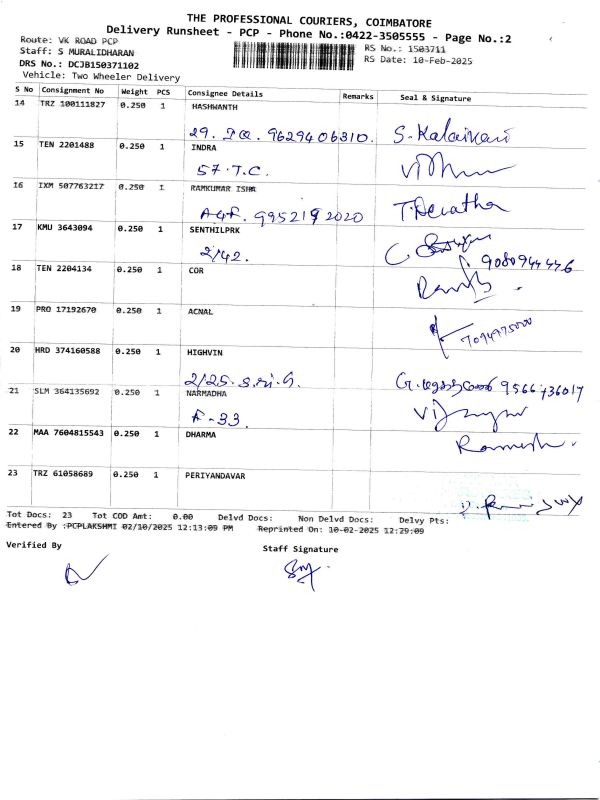 THE PROFESSIONAL COURIERS, COIMBATORE
Delivery Runsheet - PCP - Phone No.:0422-3505555 - Page No.:2
Route: VK ROAD PCP
RS No.: 1503711
Staff: S MURALIDHARAN
RS Date: 10-Feb-2025
DRS No.: DCJB150371102
Vehicle: Two Wheeler Delivery
S No Consignment No Weight PCS Consignee Details Remarks Seal & Signature
14 TRZ 100111827 0.250 1 HASHWANTH
29. I.Q. 9629406310. S. Kalaivani
15 TEN 2201488 0.250 1 INDRA
57.T.C.
16 IXM 507763217 0.250 1 RAMKUMAR ISHA
A4F. 9952192020
17 KMU 3643094 0.250 1 SENTHILPRK
2/42. 9080944446
18 TEN 2204134 0.250 1 COR
19 PRO 17192670 0.250 1 ACNAL
20 HRD 374160588 0.250 1 HIGHVIN
2/25. S.ri.G.
21 SLM 364135692 0.250 1 NARMADHA
F-33.
22 MAA 7604815543 0.250 1 DHARMA
Ramesh.
23 TRZ 61058689 0.250 1 PERIYANDAVAR
Tot Docs: 23 Tot COD Amt: 0.00 Delvd Docs: Non Delvd Docs: Delvy Pts:
Entered By :PCPLAKSHMI 02/10/2025 12:13:09 PM Reprinted On: 10-02-2025 12:29:09
Verified By
Staff Signature